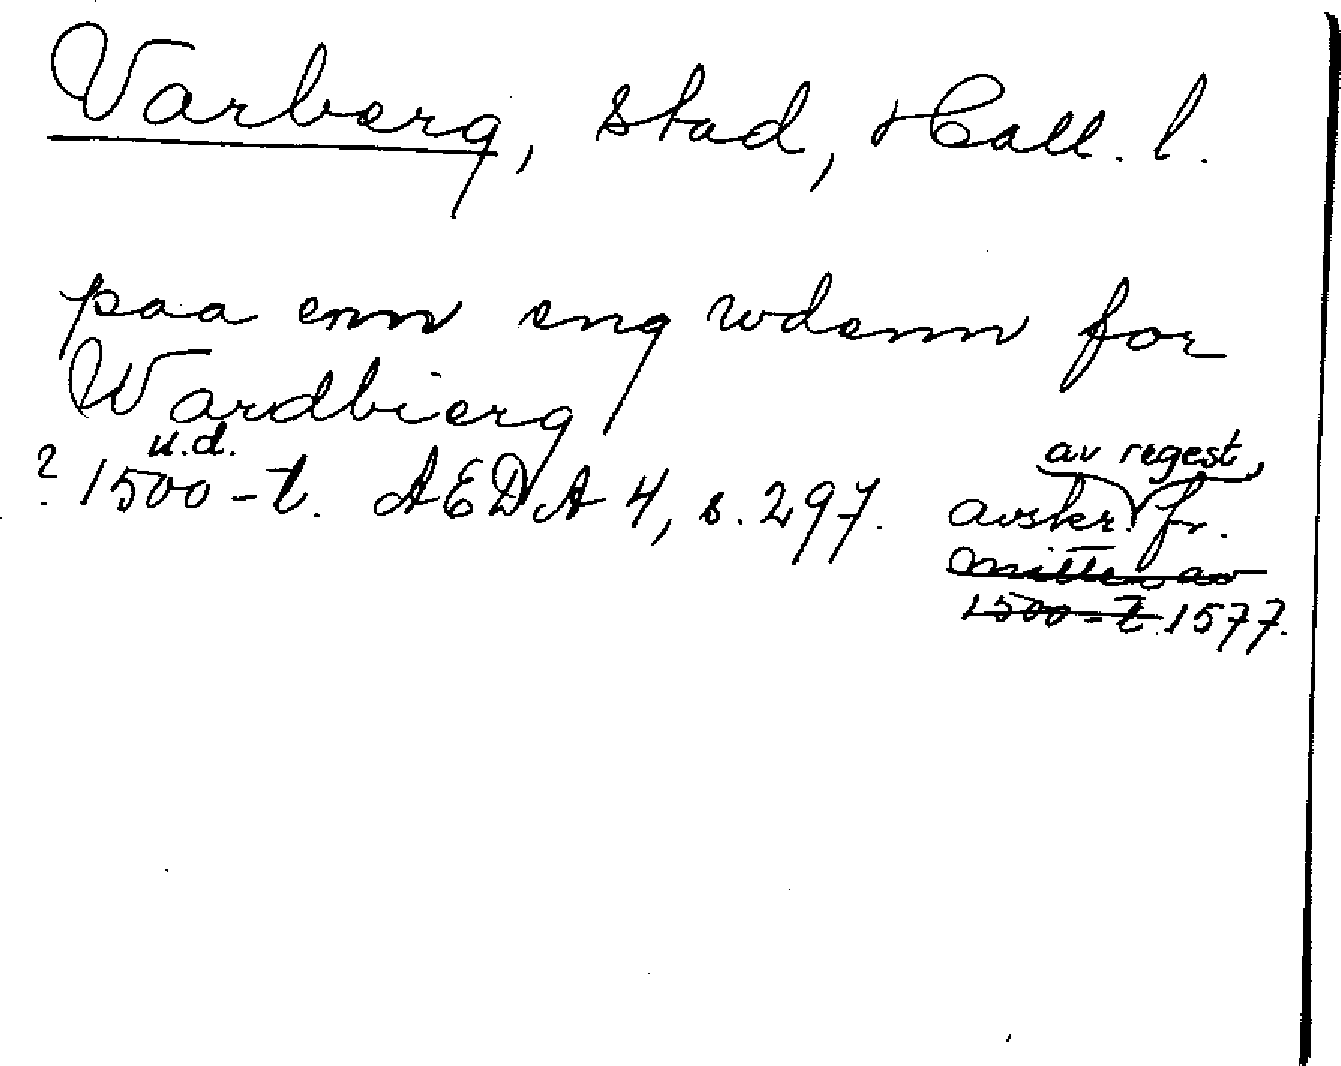 Varberg, stad, Hall. l.
paa enn eng wdenn for
Wardbierg
u.d.
? 1500-t. AEDA 4, s. 297. avskr. av regest, fr.
mitten av
1500-t. 1577.